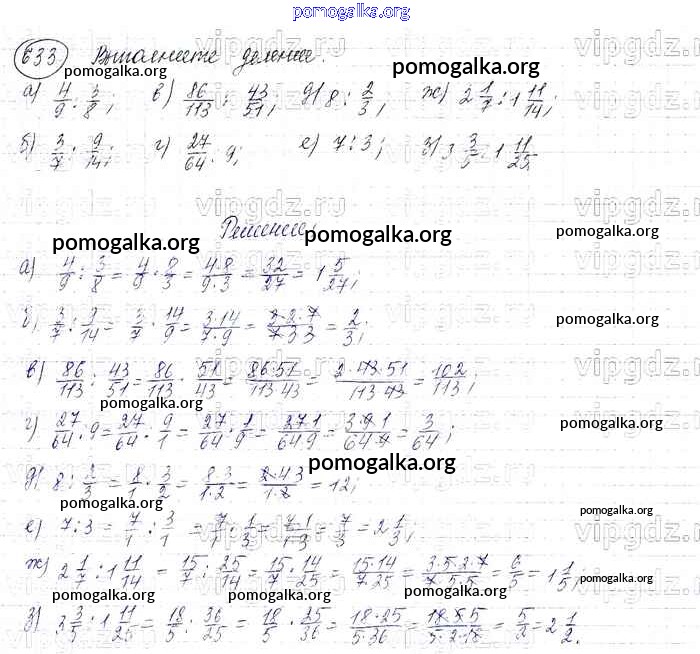 pomogalka.org
633 Выполните деление.
pomogalka.org
а) 4/9 : 3/8; в) 86/113 : 43/51; д) 8 : 2/3; ж) 2 1/7 : 1 11/14;
pomogalka.org
б) 3/7 : 9/14; г) 27/64 : 9; е) 7 : 3; з) 3 3/5 : 1 11/25
vipgdz.ru
Решение
pomogalka.org pomogalka.org pomogalka.org
а) 4/9 : 3/8 = 4/9 · 8/3 = 4·8/9·3 = 32/27 = 1 5/27;
pomogalka.org
б) 3/7 : 9/14 = 3/7 · 14/9 = 3·14/7·9 = 3·2·7/7·3·3 = 2/3;
vipgdz.ru
в) 86/113 : 43/51 = 86/113 · 51/43 = 86·51/113·43 = 2·43·51/113·43 = 102/113;
pomogalka.org pomogalka.org
г) 27/64 : 9 = 27/64 : 9/1 = 27/64 · 1/9 = 27·1/64·9 = 3·9·1/64·9 = 3/64;
pomogalka.org
pomogalka.org
д) 8 : 2/3 = 8/1 · 3/2 = 8·3/1·2 = 2·4·3/1·2 = 12;
pomogalka.org
pomogalka.org
е) 7 : 3 = 7/1 : 3/1 = 7/1 · 1/3 = 7·1/1·3 = 7/3 = 2 1/3;
vipgdz.ru
ж) 2 1/7 : 1 11/14 = 15/7 : 25/14 = 15/7 · 14/25 = 15·14/7·25 = 3·5·2·7/7·5·5 = 6/5 = 1 1/5;
pomogalka.org
pomogalka.org pomogalka.org
з) 3 3/5 : 1 11/25 = 18/5 : 36/25 = 18/5 · 25/36 = 18·25/5·36 = 18·5·5/5·2·18 = 5/2 = 2 1/2.